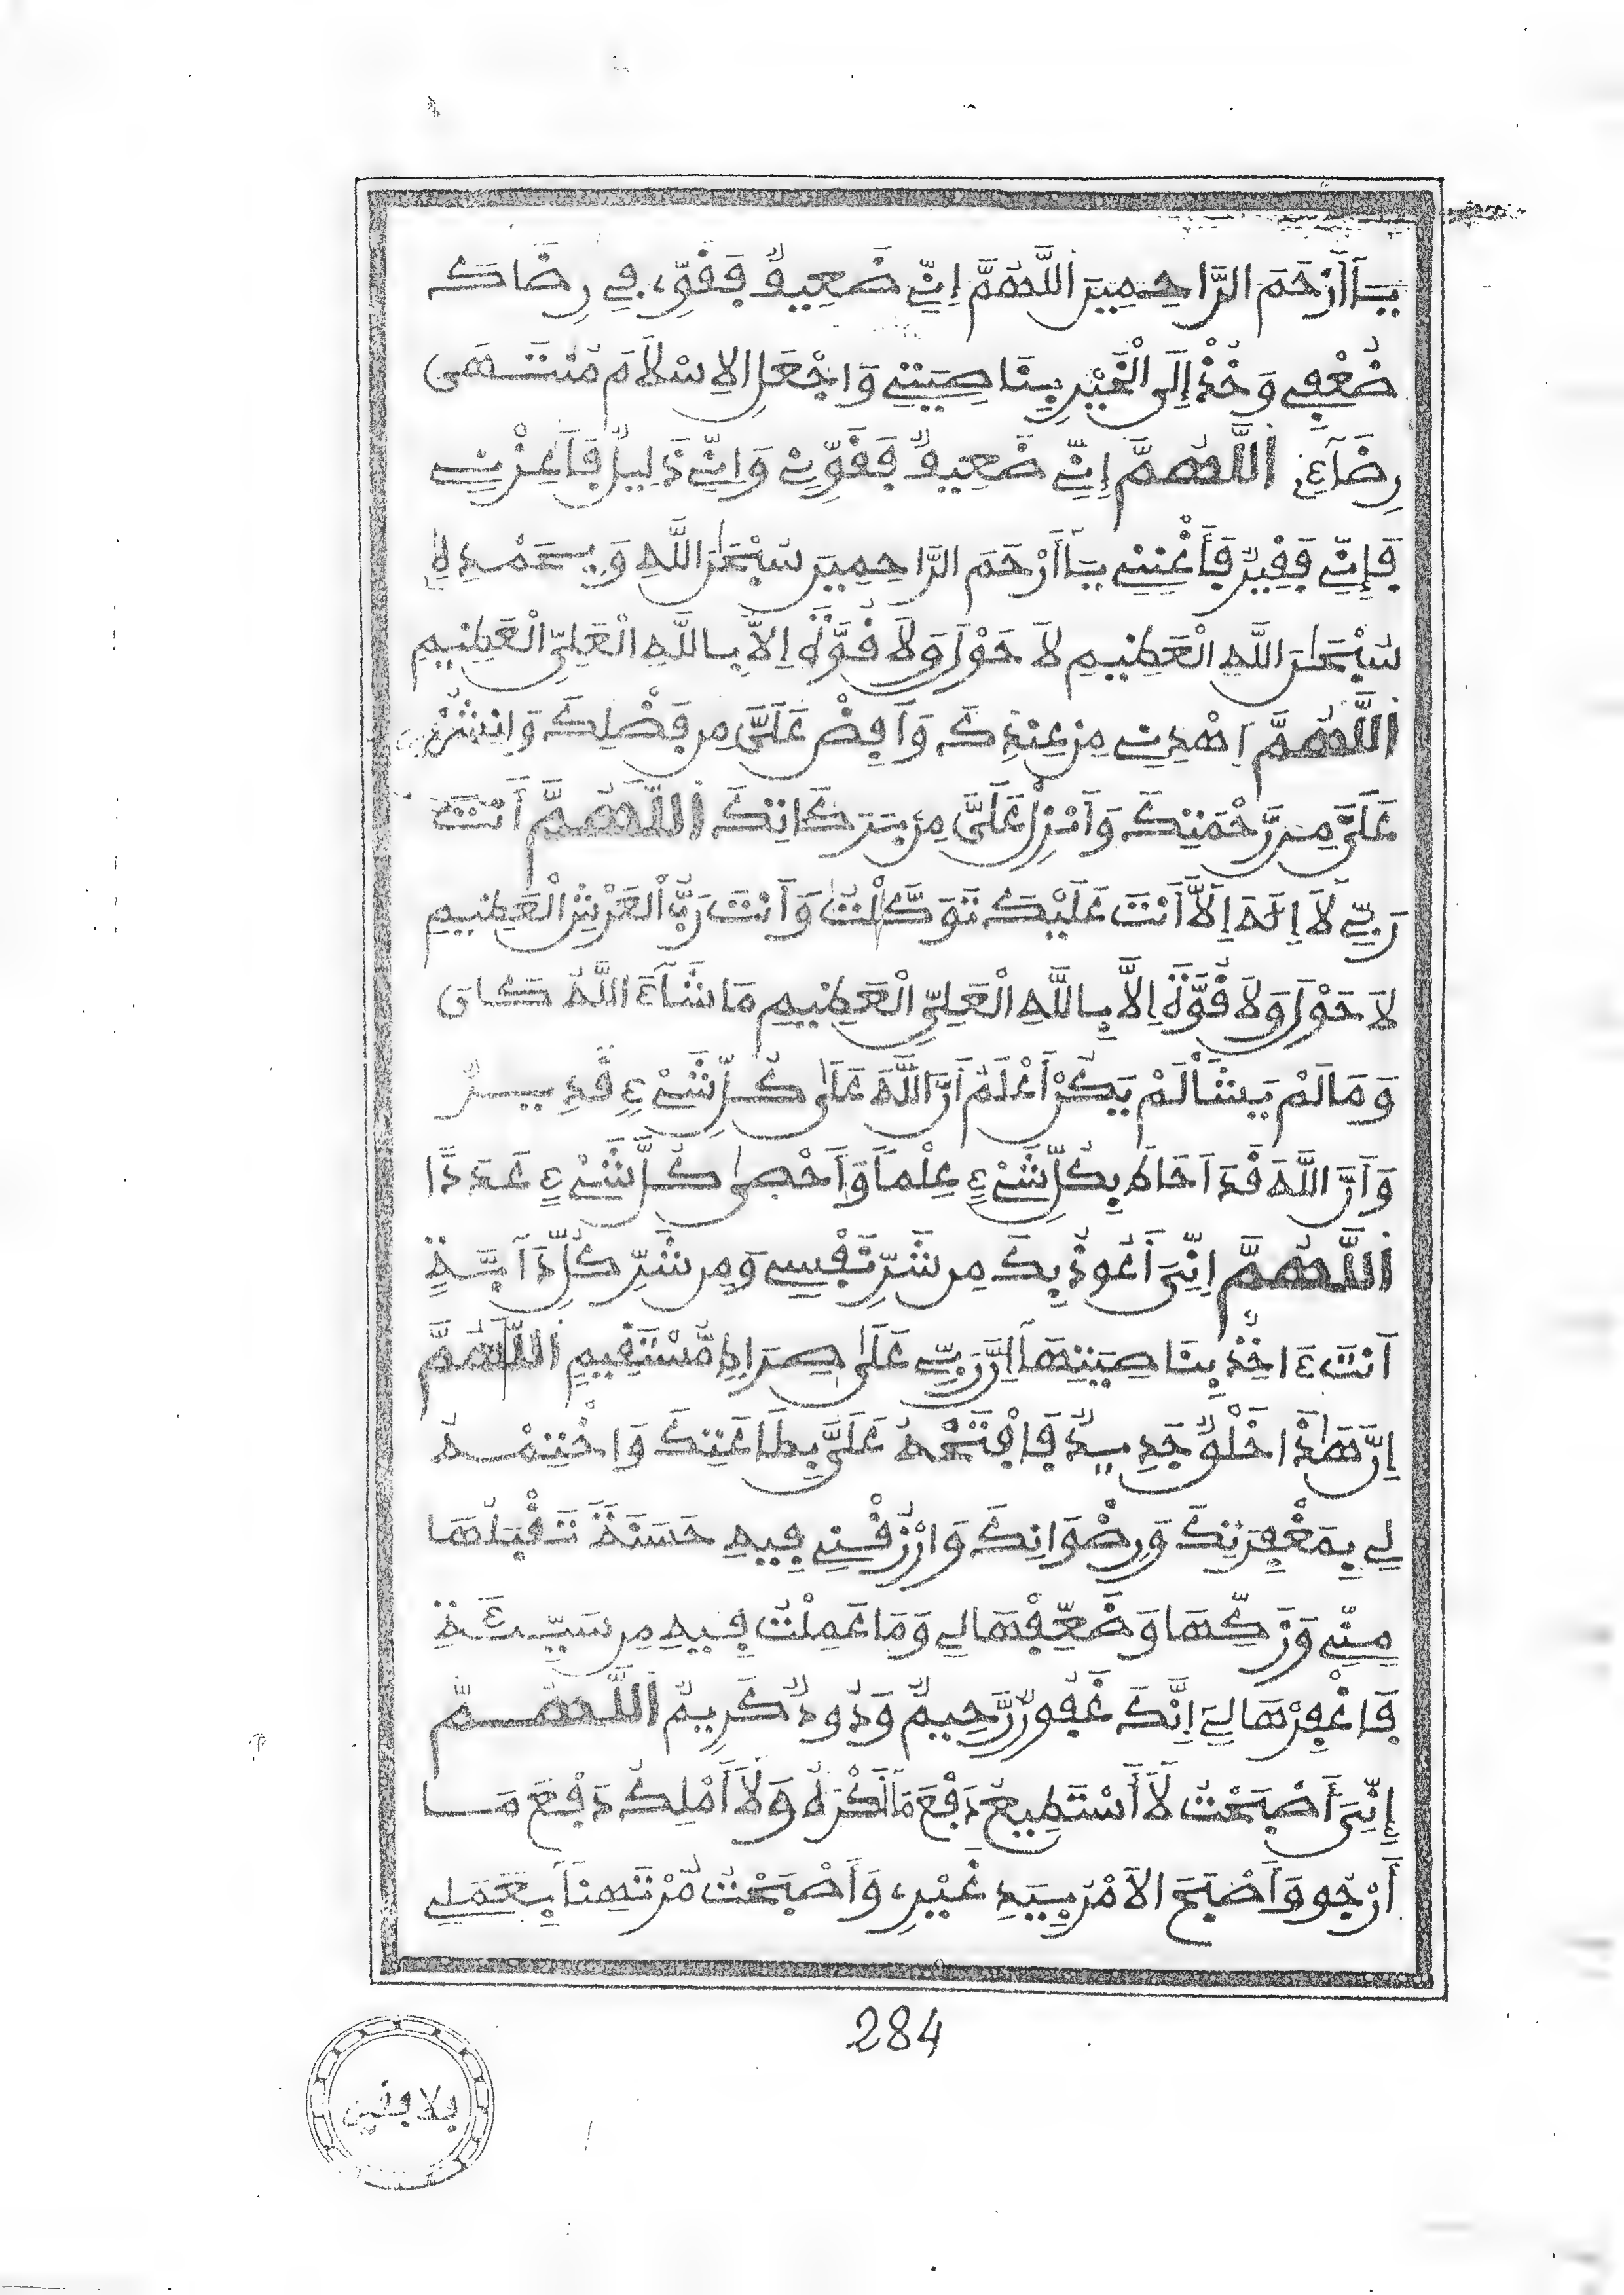 يَا أَرْحَمَ الرَّاحِمِينَ اللَّهُمَّ إِنِّي ضَعِيفٌ فَقَوِّ فِي رِضَاكَ
ضُعْفِي وَخُذْ إِلَى الْخَيْرِ بِنَاصِيَتِي وَاجْعَلِ الإِسْلَامَ مُنْتَهَى
رِضَآءِي اللَّهُمَّ إِنِّي ضَعِيفٌ فَقَوِّنِي وَإِنِّي ذَلِيلٌ فَأَعِزَّنِي
فَإِنِّي فَقِيرٌ فَأَغْنِنِي يَا أَرْحَمَ الرَّاحِمِينَ سُبْحَٰنَ اللَّهِ وَبِحَمْدِهِ
سُبْحَٰنَ اللَّهِ الْعَظِيمِ لَا حَوْلَ وَلَا قُوَّةَ إِلَّا بِاللَّهِ الْعَلِيِّ الْعَظِيمِ
اللَّهُمَّ اهْدِنِي مِنْ عِنْدِكَ وَأَفِضْ عَلَيَّ مِن فَضْلِكَ وَانْشُرْ
عَلَيَّ مِن رَّحْمَتِكَ وَأَنْزِلْ عَلَيَّ مِنْ بَرَكَاتِكَ اللَّهُمَّ أَنْتَ
رَبِّي لَا إِلَهَ إِلَّا أَنْتَ عَلَيْكَ تَوَكَّلْتُ وَأَنْتَ رَبُّ الْعَرْشِ الْعَظِيمِ
لَا حَوْلَ وَلَا قُوَّةَ إِلَّا بِاللَّهِ الْعَلِيِّ الْعَظِيمِ مَا شَآءَ اللَّهُ كَانَ
وَمَا لَمْ يَشَأْ لَمْ يَكُنْ أَعْلَمُ أَنَّ اللَّهَ عَلَىٰ كُلِّ شَيْءٍ قَدِيرٌ
وَأَنَّ اللَّهَ قَدْ أَحَاطَ بِكُلِّ شَيْءٍ عِلْماً وَأَحْصَىٰ كُلَّ شَيْءٍ عَدَدًا
اللَّهُمَّ إِنِّيَ أَعُوذُ بِكَ مِن شَرِّ نَفْسِي وَمِن شَرِّ كُلِّ دَآبَّةٍ
أَنْتَ ءَاخِذٌ بِنَاصِيَتِهَا إِنَّ رَبِّي عَلَىٰ صِرَاطٍ مُّسْتَقِيمٍ اللَّهُمَّ
إِنَّ هَٰذَا خَلْقٌ جَدِيدٌ فَافْتَحْهُ عَلَيَّ بِطَاعَتِكَ وَاخْتِمْهُ
لِي بِمَغْفِرَتِكَ وَرِضْوَانِكَ وَارْزُقْنِي فِيهِ حَسَنَةً تَقْبَلُهَا
مِنِّي وَزَكِّهَا وَضَعِّفْهَا لِي وَمَا عَمِلْتُ فِيهِ مِن سَيِّئَةٍ
فَاغْفِرْهَا لِيَ إِنَّكَ غَفُورٌ رَّحِيمٌ وَدُودٌ كَرِيمٌ اللَّهُمَّ
إِنِّيَ أَصْبَحْتُ لَا أَسْتَطِيعُ دَفْعَ مَا أَكْرَهُ وَلَا أَمْلِكُ دَفْعَ مَا
أَرْجُو وَأَصْبَحَ الأَمْرُ بِيَدِ غَيْرِي وَأَصْبَحْتُ مُرْتَهِناً بِعَمَلِي
284